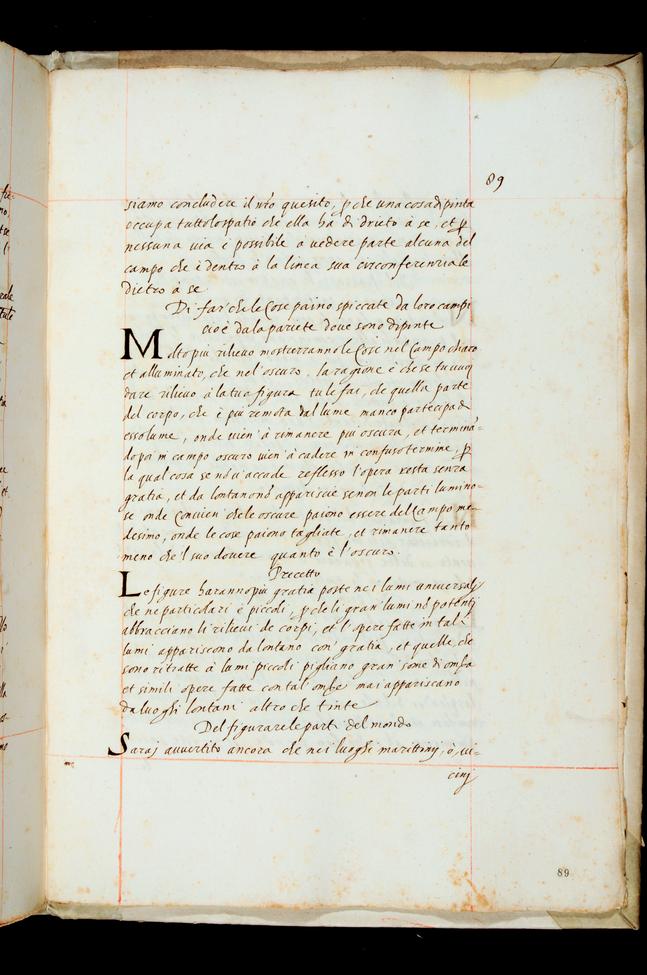 89
siamo concludere il nr̃o quesito, p̱che una cosa dipinta
occupa tutto lo spatio che ella ha di drieto à se, et p̱
nessuna uia è possibile a uedere parte alcuna del
campo che è dentro à la linea sua circonferenziale
dietro à se.
Di far' che le Cose paino spiccate da loro campi
cioè da la pariete doue sono dipinte
Molto più rilieuo mostrerranno le Cose nel Campo chiaro
et alluminato, che nel' oscuro. la ragione è che se tu uuoi
dare rilieuo à la tua figura tu le fai, che quella parte
del corpo, che è più remota dal lume manco partecipa di
esso lume, onde uien' à rimanere più oscura, et terminã=
do poi in campo oscuro uien' à cadere in confuso termine, p̱
la qual cosa se nõ u'accade reflesso l'opera resta senza
gratia, et da lontano nõ appariscie se non le parti lumino=
se onde Conuien' che le oscure paiono essere del Campo me=
desimo, onde le cose paiono tagliate, et rimanere tanto
meno che 'l suo douere quanto è l'oscuro.
Precetto
Le figure haranno più gratia poste ne i lumi uniuersali
che ne particolari è piccoli, p̱che li gran' lumi nõ potenti
abbracciano li rilieui de corpi, et l'opere fatte in tali
lumi appariscono da lontano con' gratia, et quelle, che
sono ritratte à lumi piccoli pigliano gran' some di ombra
et simili opere fatte con tal' ombre mai appariscano
da luoghi lontani altro che tinte
Del figurare le parti del mondo
Sarai auuertito ancora che ne i luoghi marittimi, ò, ui=
cinj
89